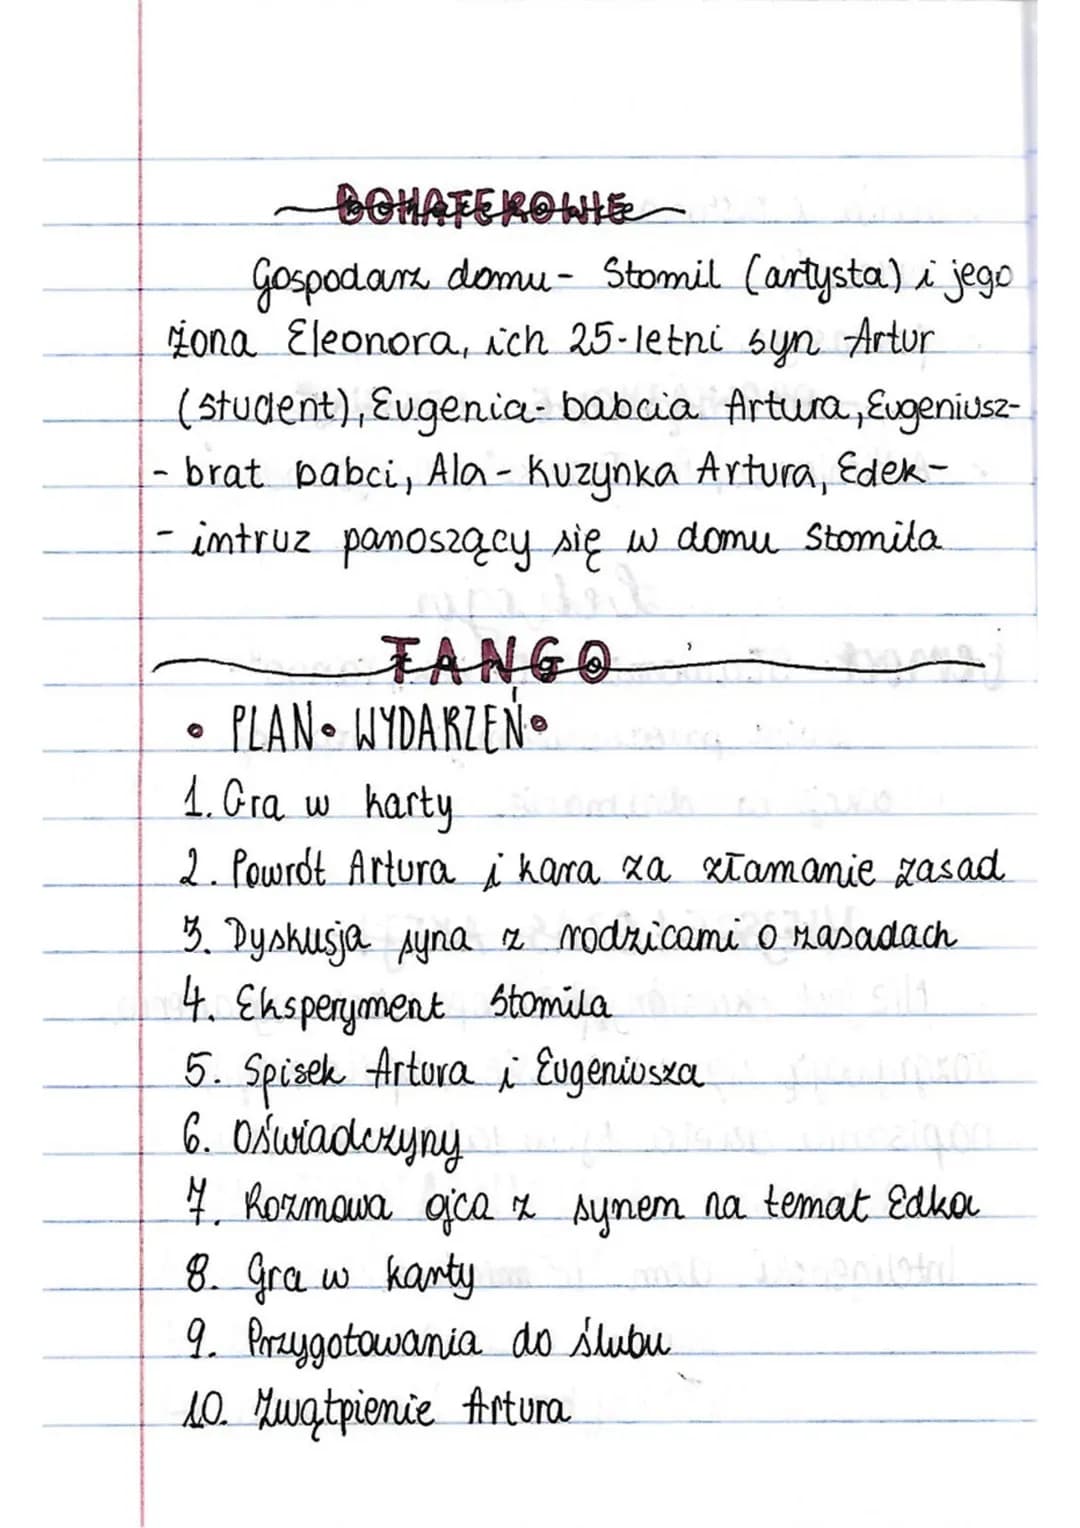 BOHATEROWIE
Gospodarz domu - Stomil (artysta) i jego
żona Eleonora, ich 25-letni syn Artur
(student), Eugenia - babcia Artura, Eugeniusz-
- brat babci, Ala - Kuzynka Artura, Edek -
- intruz panoszący się w domu Stomila
TANGO
• PLAN • WYDARZEŃ •
1. Gra w karty
2. Powrót Artura i kara za złamanie zasad
3. Dyskusja syna z rodzicami o zasadach
4. Eksperyment Stomila
5. Spisek Artura i Eugeniusza
6. Oświadczyny
7. Rozmowa ojca z synem na temat Edka
8. Gra w karty
9. Przygotowania do ślubu
10. Zwątpienie Artura